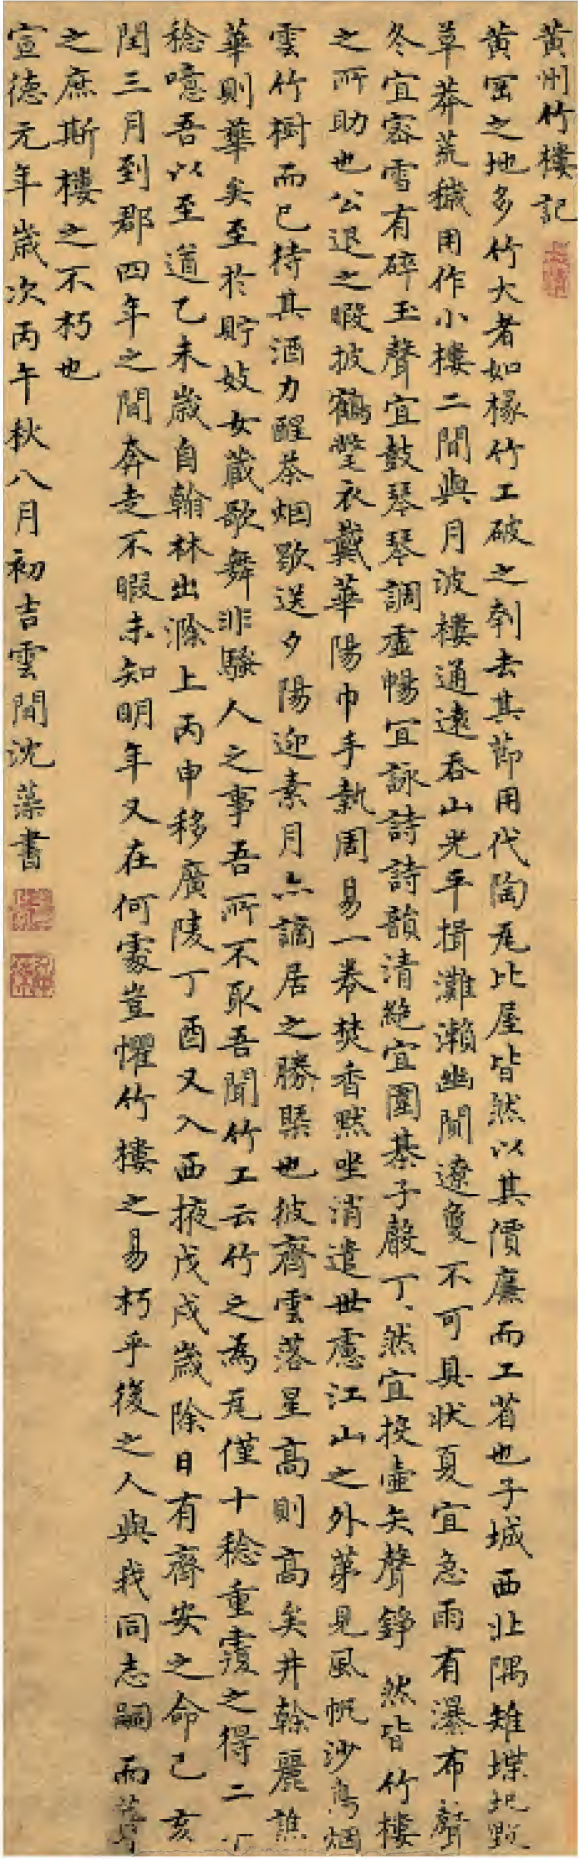 黄州竹樓記
黄岡之地多竹大者如椽竹工破之刳去其節用代陶瓦比屋皆然以其價廉而工省也子城西北隅雉堞圮毁
草莽荒穢用作小樓二間與月波樓通遠吞山光平揖灘瀨幽閴遼夐不可具狀夏宜急雨有瀑布聲
冬宜密雪有碎玉聲宜鼓琴琴調虛暢宜詠詩詩韻清絶宜圍棊子聲丁丶然宜投壺矢聲錚然皆竹樓
之所助也公退之暇披鶴氅衣戴華陽巾手執周易一卷焚香默坐消遣世慮江山之外苐見風帆沙鳥烟
雲竹樹而已待其酒力醒茶烟歇送夕陽迎素月亦謫居之勝槩也彼齊雲落星高則高矣井榦麗譙
華則華矣至於貯妓女蔵歌舞非騷人之事吾所不取吾聞竹工云竹之為瓦僅十稔重覆之得二十
稔噫吾以至道乙未歲自翰林出滁上丙申移廣陵丁酉又入西掖戊戌歲除日有齊安之命己亥
閏三月到郡四年之間奔走不暇未知明年又在何處豈懼竹樓之易朽乎後之人與我同志嗣而葺
之庶斯樓之不朽也
宣德元年歲次丙午秋八月初吉雲間沈藻書